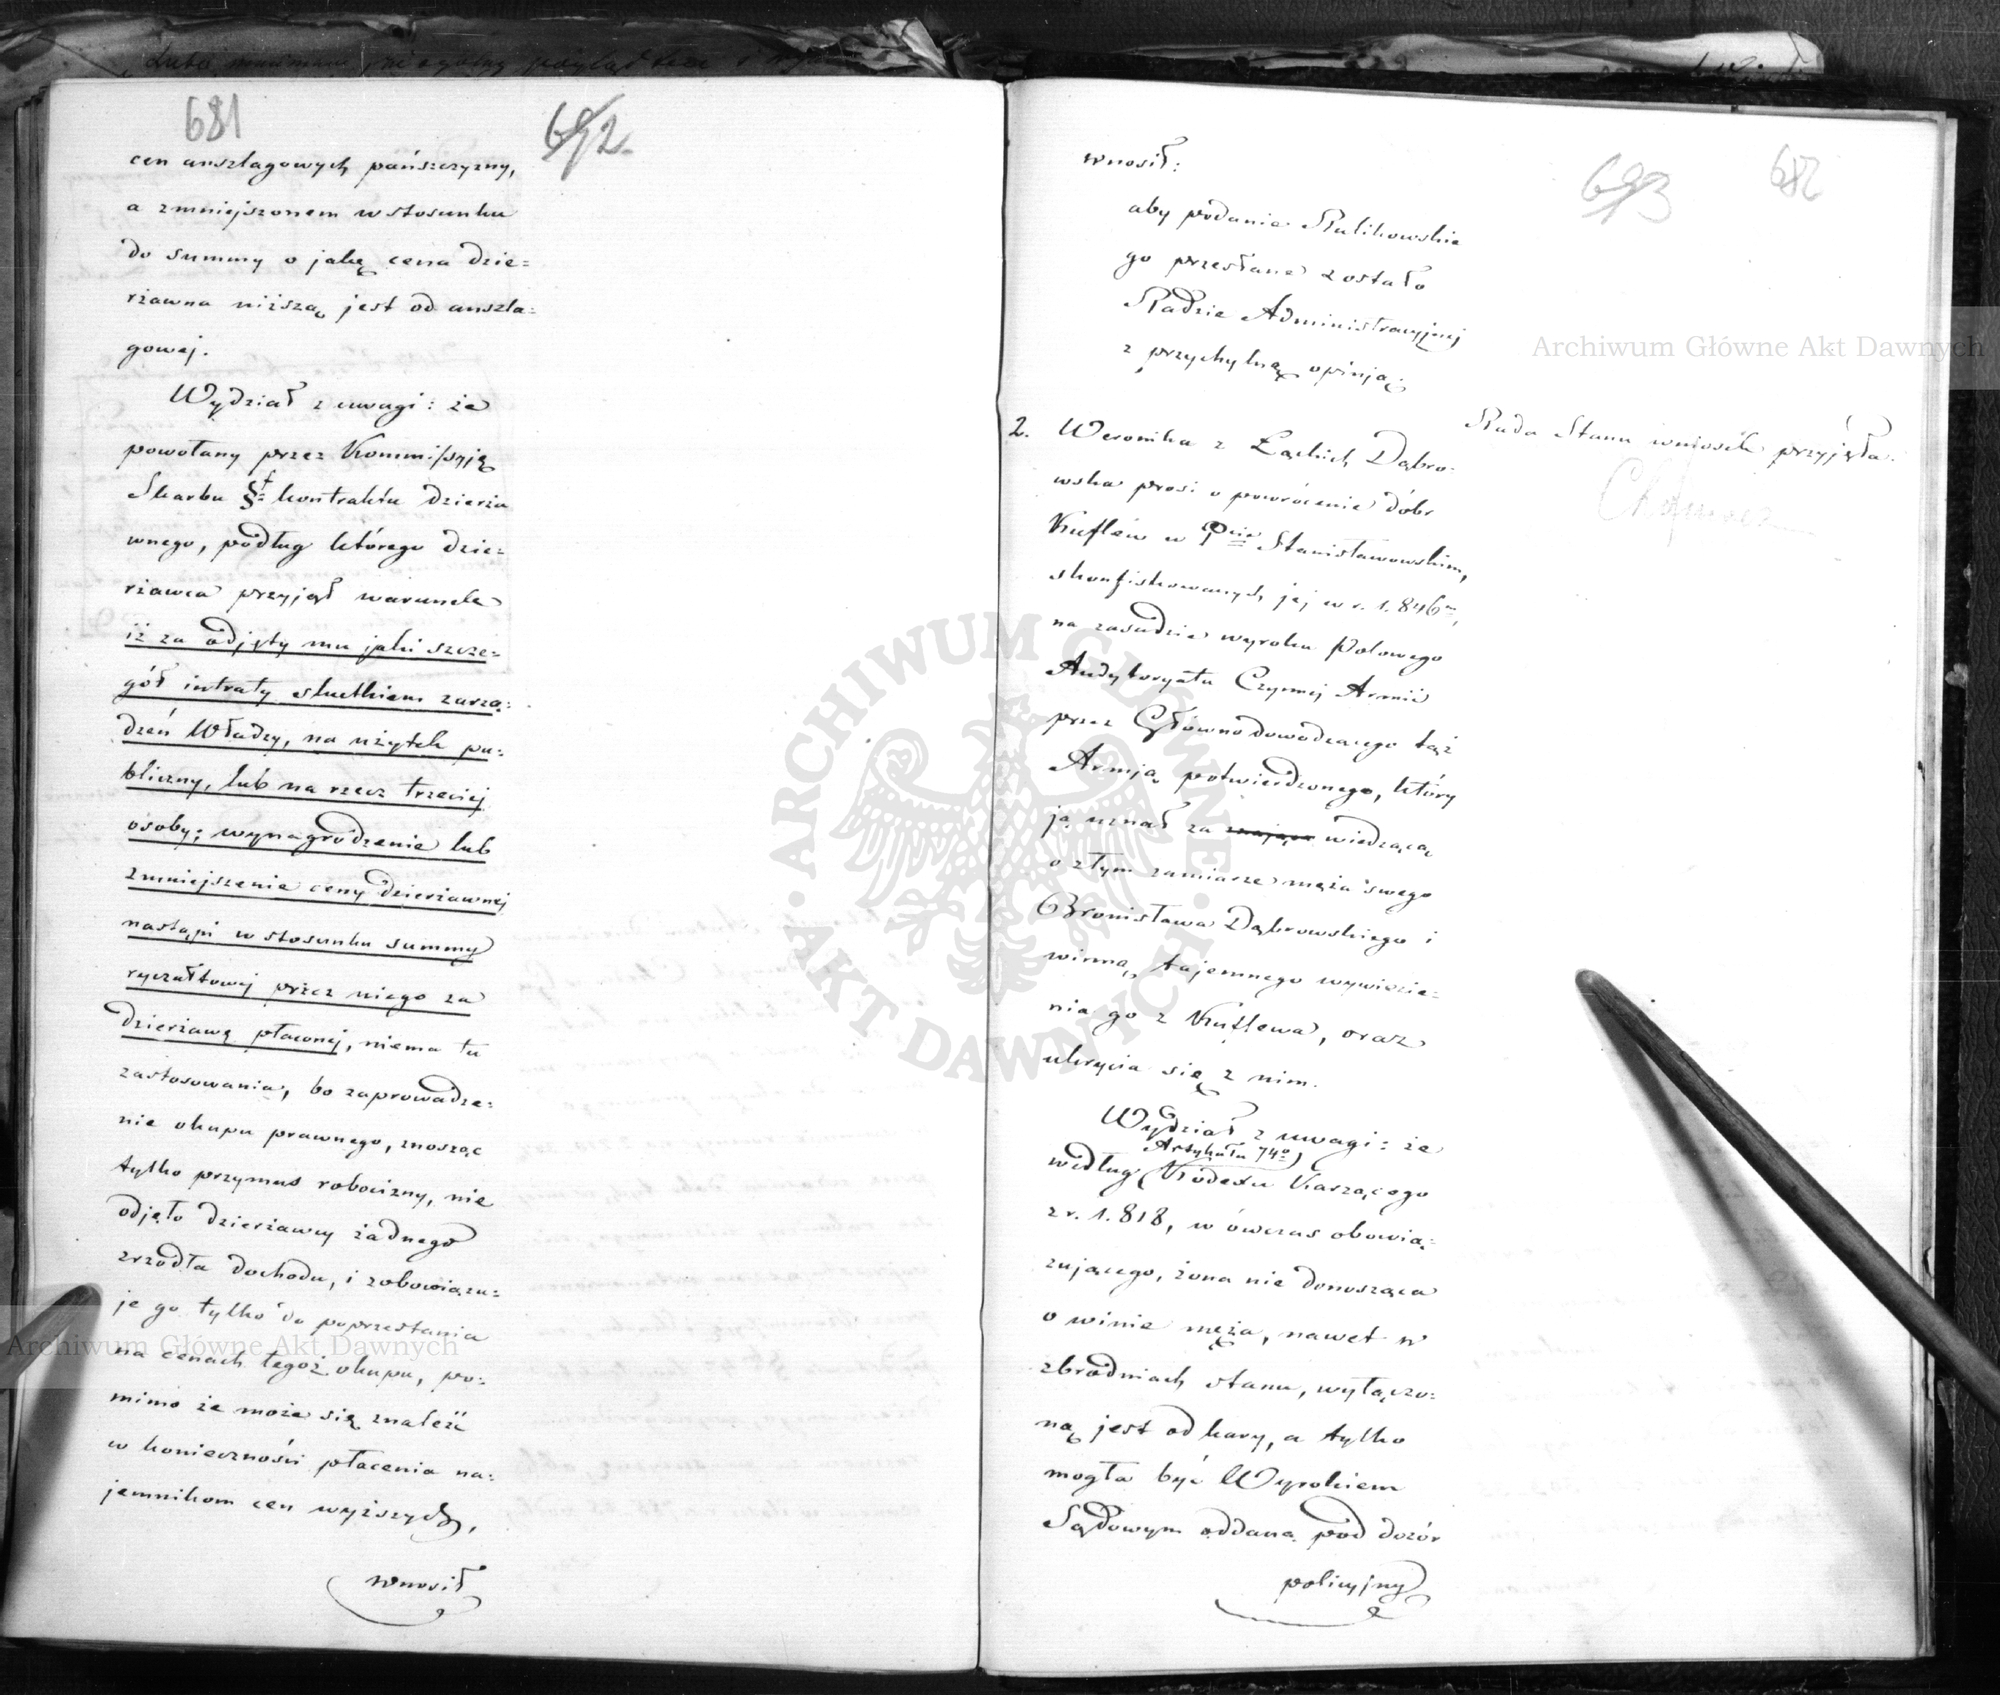 681
692.
cen anszlagowych pańszczyzny,
a zmniejszonem w stosunku
do summy o jaką cena dzie=
rżawna niższą jest od anszla=
gowej.
Wydział z uwagi: że
powołany przez Kommissyję
Skarbu § kontraktu dzierża
wnego, podług którego dzie=
rżawca przyjął warunek
iż za odjęty mu jaki szcze=
gół intraty skutkiem zarzą=
dzeń Władzy, na użytek pu=
bliczny, lub na rzecz trzeciej
osoby; wynagrodzenie lub
zmniejszenie ceny dzierżawnej
nastąpi w stosunku summy
ryczałtowej przez niego za
dzierżawę płaconej, niema tu
zastosowania, bo zaprowadze=
nie okupu prawnego, znosząc
tylko przymus robocizny, nie
odjęło dzierżawcy żadnego
zrzódła dochodu, i zobowiązu=
je go tylko do poprzestania
na cenach tegoż okupu, po=
mimo że może się znaleźć
w konieczności płacenia na=
jemnikom cen wyższych,
wnosił
693
682
wnosił:
aby podanie Rulikowskie
go przesłane zostało
Radzie Administracyjnej
z przychylną opinją;
Rada Stanu wniosek przyjęła.
2. Weronika z Łąckich Dąbro=
wska prosi o powrócenie dóbr
Kuflew w Pcie Stanisławowskim,
skonfiskowanych jej w r. 1.846m,
na zasadzie wyroku Polowego
Audytoryatu Czynnej Armii
przez Głównodowodzącego tąż
Armją potwierdzonego, który
ją uznał za znającą wiedzącą
o złym zamiarze męża swego
Bronisława Dąbrowskiego i
winną, tajemnego wywiezie=
nia go z Kuflewa, oraz
ukrycia się z nim.
Wydział z uwagi: że
Artykułu 74o
według Kodexu Karzącego
z r. 1.818, w ówczas obowią=
zującego, żona nie donosząca
o winie męża, nawet w
zbrodniach stanu, wyłączo=
ną jest od kary, a tylko
mogła być Wyrokiem
Sądowym oddaną pod dozór
policyjny
Archiwum Główne Akt Dawnych
Archiwum Główne Akt Dawnych
ARCHIWUM GŁÓWNE · AKT DAWNYCH ·